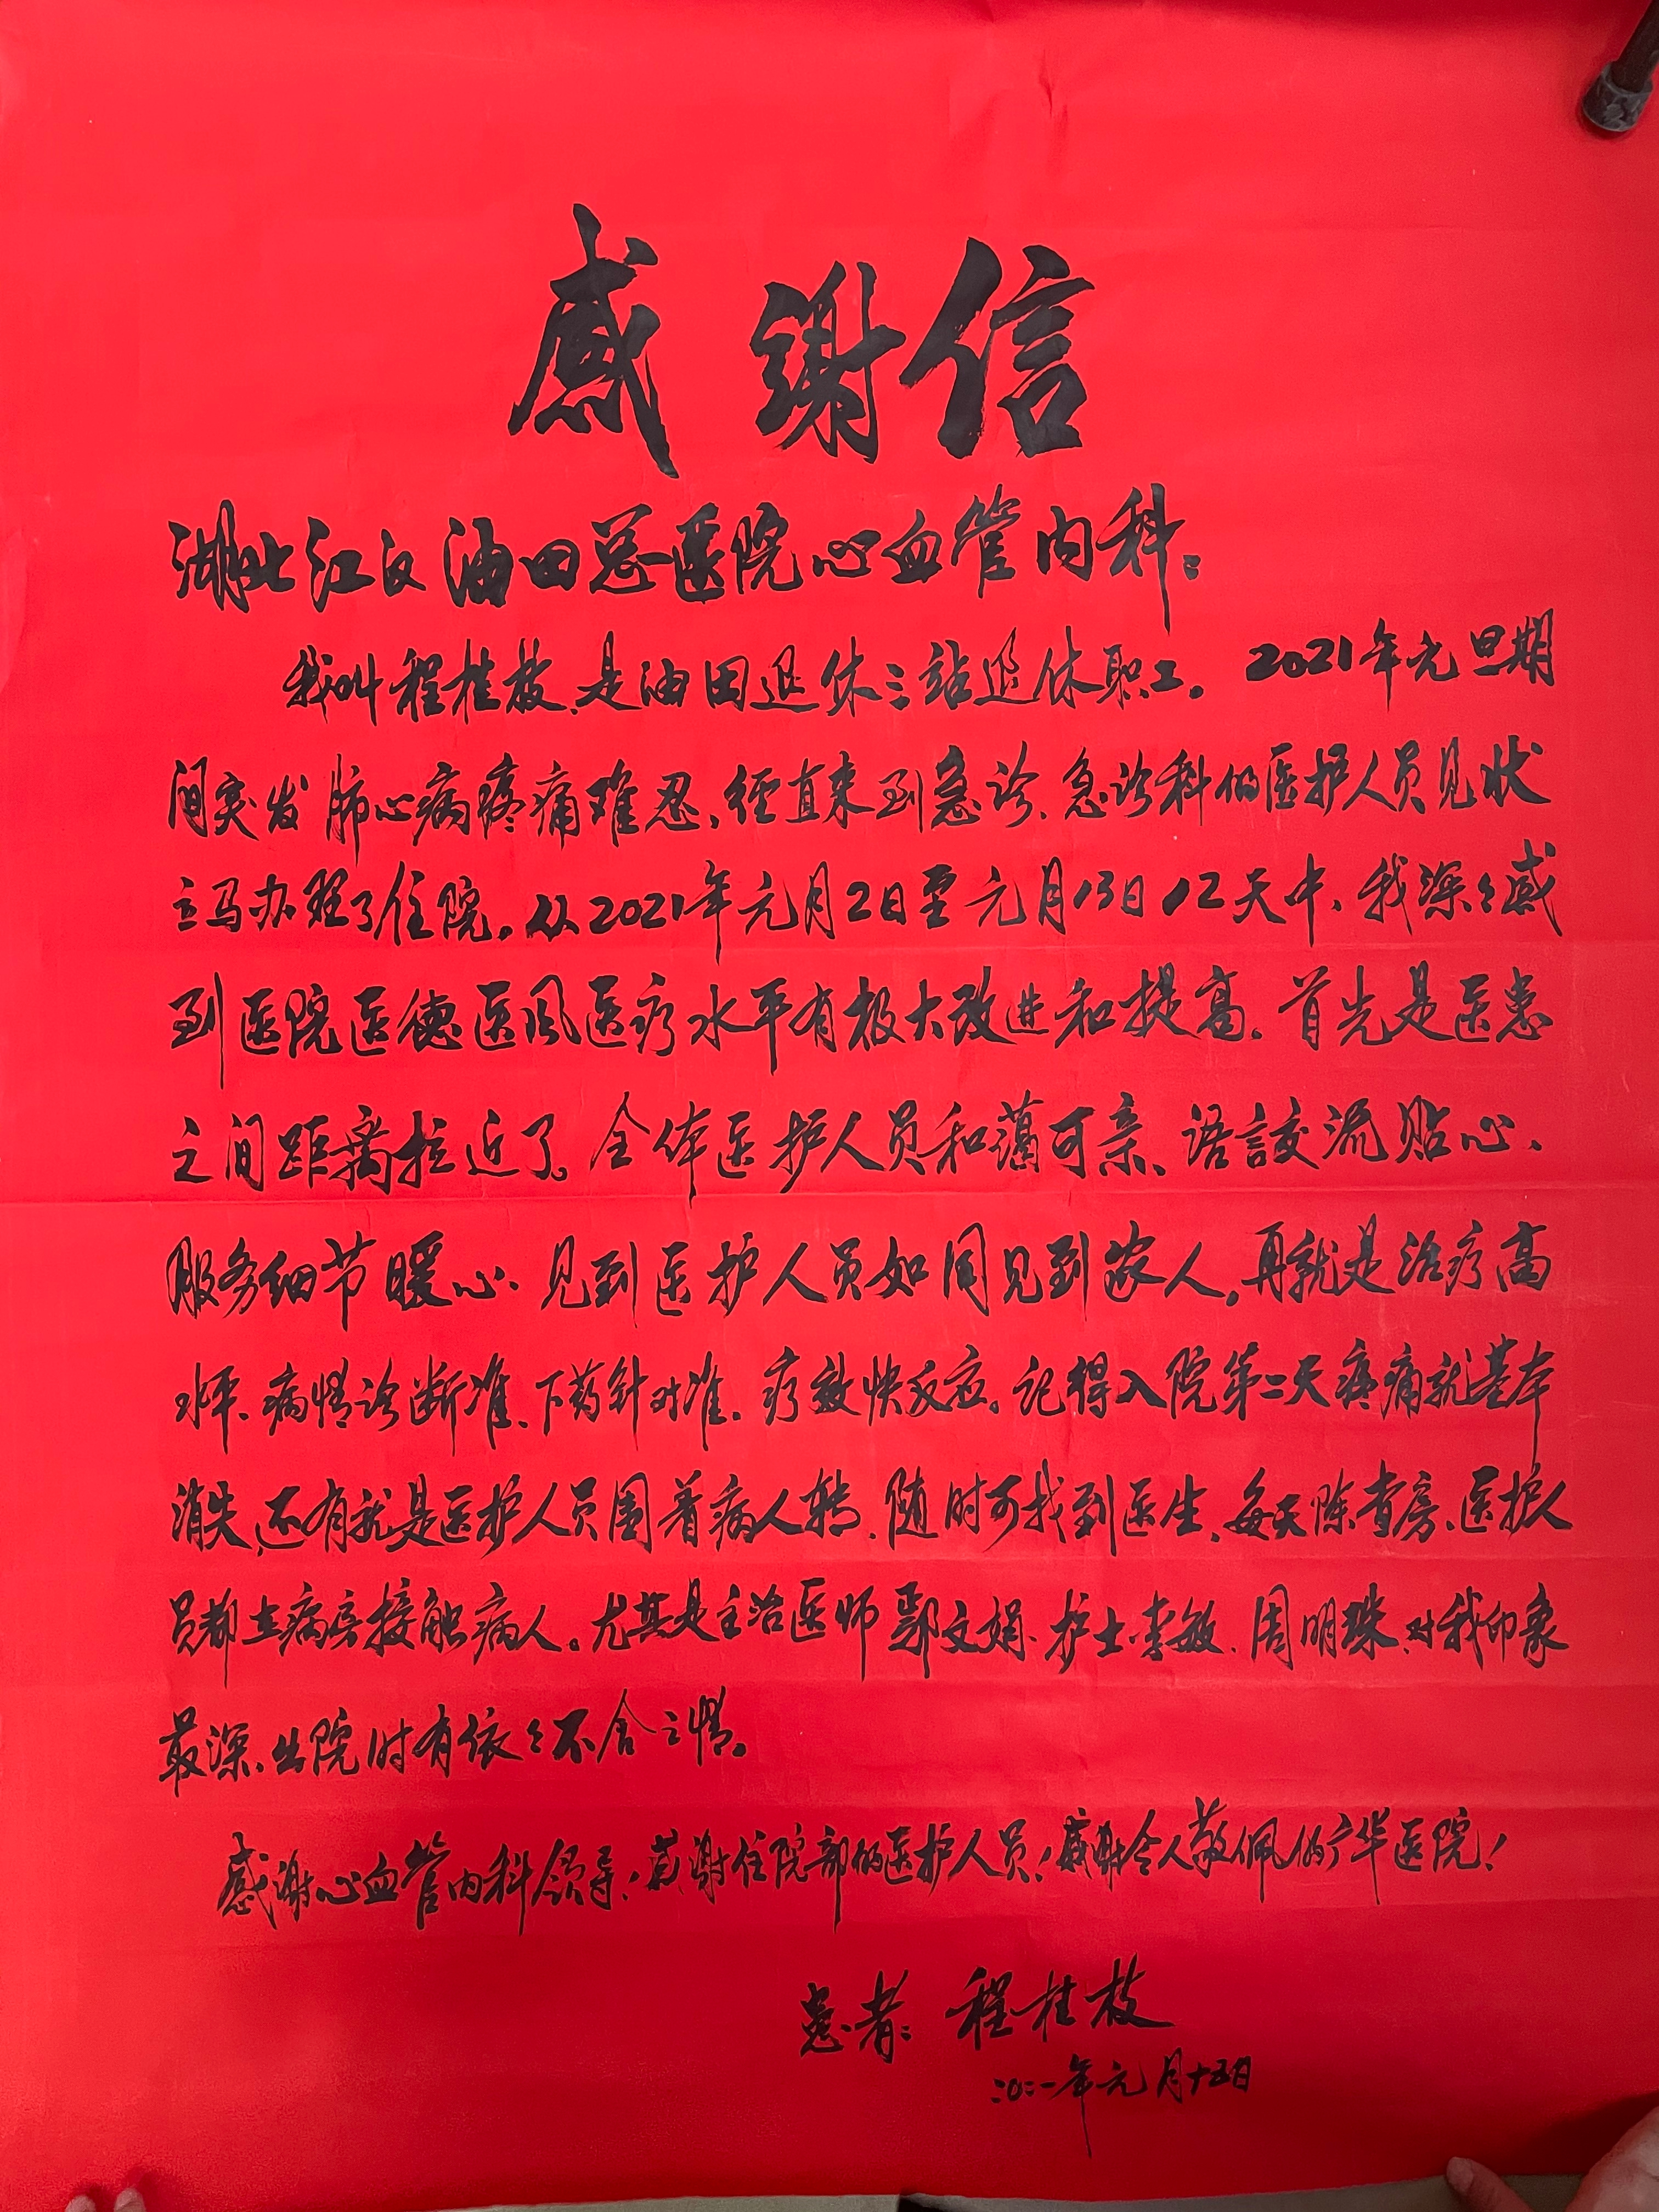 感谢信
湖北江汉油田总医院心血管内科：
我叫程桂枝、是油田退休三站退休职工。2021年元旦期
间突发肺心病疼痛难忍、经直来到急诊、急诊科的医护人员见状
立马办理了住院。从2021年元月2日至元月13日12天中、我深々感
到医院医德医风医疗水平有极大改进和提高。首先是医患
之间距离拉近了。全体医护人员和蔼可亲、语言交流贴心、
服务细节暖心、见到医护人员如同见到家人，再就是治疗高
水平、病情诊断准、下药针对准、疗效快反应。记得入院第二天疼痛就基本
消失、还有就是医护人员围着病人转、随时可找到医生、每天除查房、医护人
员都在病房接触病人。尤其是主治医师鄢文娟、护士李敏、周明珠、对我印象
最深、出院时有依々不舍之情。
感谢心血管内科领导！感谢住院部的医护人员！感谢令人敬佩的广华医院！
患者：程桂枝
二〇二一年元月十五日